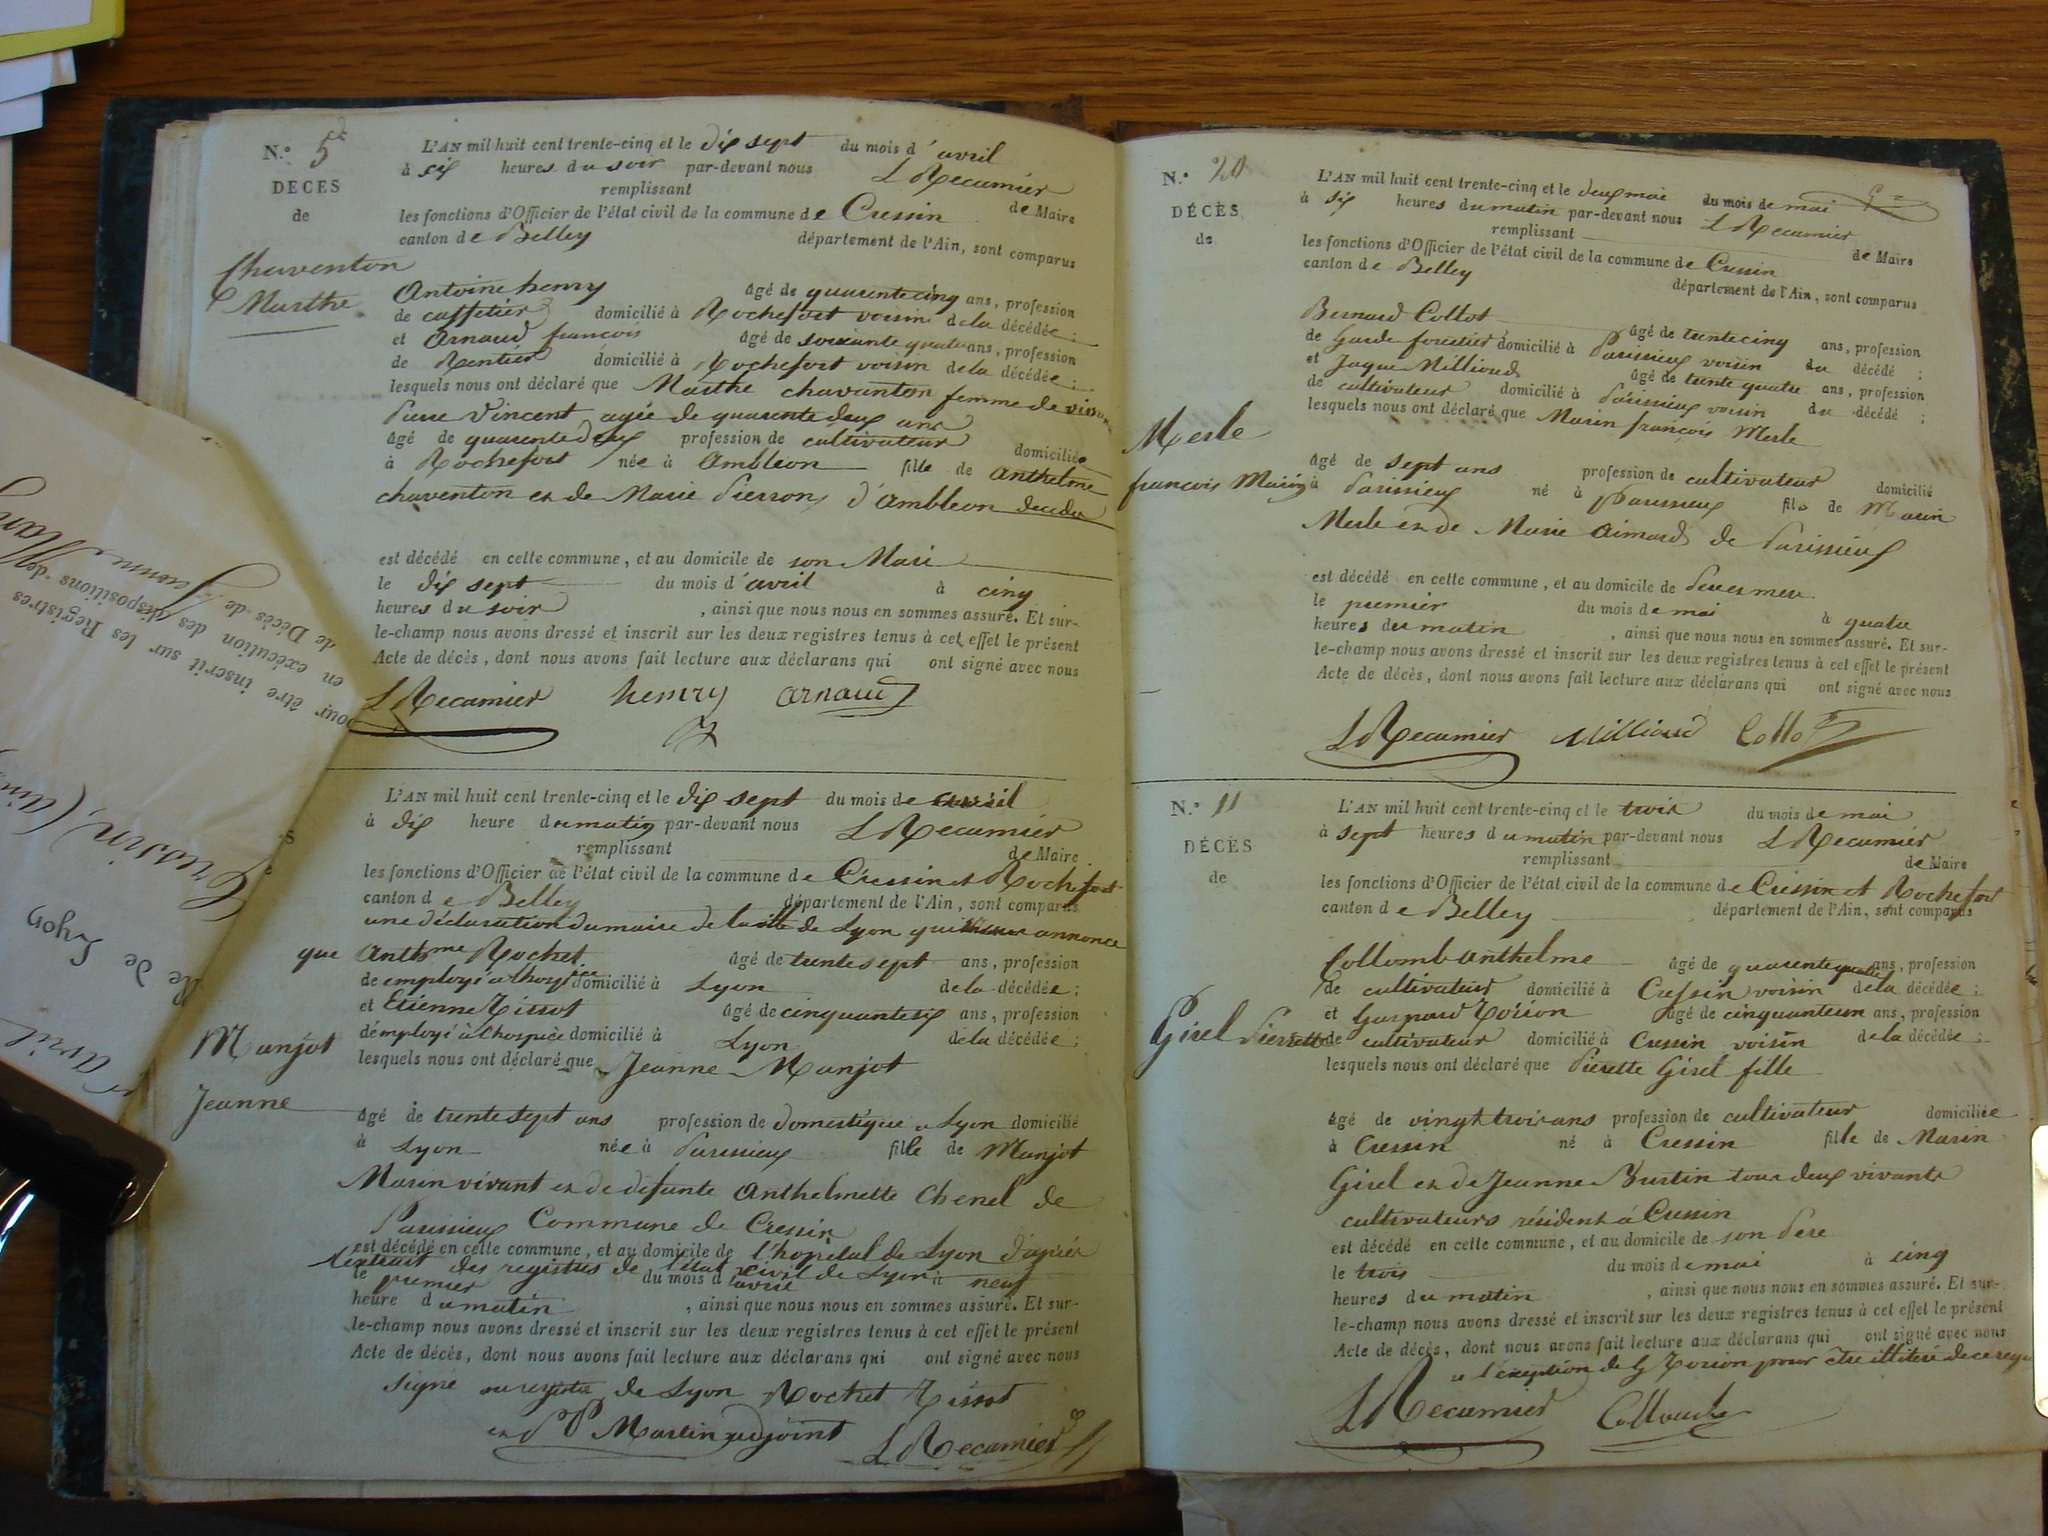 N.º 5
DECES
de
Chaventon
Marthe
L'AN mil huit cent trente-cinq et le dix sept du mois d'avril
à six heures du soir par-devant nous L Recamier
remplissant de Maire
les fonctions d'Officier de l'état civil de la commune de Cressin
canton de Belley département de l'Ain, sont comparus
Antoine henry âgé de quarente cinq ans, profession
de caffetier domicilié à Rochefort voisin de la décédée ;
et Arnaud françois âgé de soixante quatre ans, profession
de Rentier domicilié à Rochefort voisin de la décédée ;
lesquels nous ont déclaré que Marthe chavanton femme de
Pierre Vincent agée de quarente deux ans
âgé de quarente deux profession de cultivateur domiciliée
à Rochefort née à Ambleon fille de Anthelme
chaventon et de Marie Pierron d'Ambleon
est décédé en cette commune, et au domicile de son Mari
le dix sept du mois d'avril à cinq
heures du soir , ainsi que nous nous en sommes assuré. Et sur-
le-champ nous avons dressé et inscrit sur les deux registres tenus à cet effet le présent
Acte de décès, dont nous avons fait lecture aux déclarans qui ont signé avec nous
L Recamier henry arnaud
L'AN mil huit cent trente-cinq et le dix sept du mois de avril
à dix heure du matin par-devant nous L Recamier
remplissant de Maire
les fonctions d'Officier de l'état civil de la commune de Cressin et Rochefort
canton de Belley département de l'Ain, sont comparus
une déclaration du maire de la ville de Lyon qui annonce
que Anthme Rochet âgé de trente sept ans, profession
de employé à domicilié à Lyon de la décédée ;
et Etienne Tissot âgé de cinquante six ans, profession
d'employé à l'hospice domicilié à Lyon de la décédée ;
lesquels nous ont déclaré que Jeanne Manjot
Manjot
Jeanne
âgé de trente sept ans profession de domestique a Lyon domicilié
à Lyon née à Parissieux fille de Manjot
Marin vivant et de defunte Anthelmette Chenel de
Parissieux Commune de Cressin
est décédé en cette commune, et au domicile de l'hopital de Lyon d'après
l'extrait des registres de l'état civil de Lyon
le premier du mois d'avril à neuf
heure du matin , ainsi que nous nous en sommes assuré. Et sur-
le-champ nous avons dressé et inscrit sur les deux registres tenus à cet effet le présent
Acte de décès, dont nous avons fait lecture aux déclarans qui ont signé avec nous
signé de Lyon Rochet Tissot
Martin adjoint L Recamier
N.º
DÉCÈS
de
Merle
françois Marin
L'AN mil huit cent trente-cinq et le deux mai du mois de mai
à six heures du matin par-devant nous L Recamier
remplissant de Maire
les fonctions d'Officier de l'état civil de la commune de Cressin
canton de Belley département de l'Ain, sont comparus
Bernard Collot âgé de trente cinq ans, profession
de Garde forestier domicilié à Parissieux voisin du décédé ;
et Jaque Millioud âgé de trente quatre ans, profession
de cultivateur domicilié à Parissieux voisin du décédé ;
lesquels nous ont déclaré que Marin françois Merle
âgé de sept ans profession de cultivateur domicilié
à Parissieux né à Parissieux fils de Marin
Merle et de Marie Aimard de Parissieux
est décédé en cette commune, et au domicile de
le premier du mois de mai à quatre
heures du matin , ainsi que nous nous en sommes assuré. Et sur-
le-champ nous avons dressé et inscrit sur les deux registres tenus à cet effet le présent
Acte de décès, dont nous avons fait lecture aux déclarans qui ont signé avec nous
L Recamier Millioud Collot
N.º 11
DÉCÈS
de
Gisel Pierrette
L'AN mil huit cent trente-cinq et le trois du mois de mai
à sept heures du matin par-devant nous L Recamier
remplissant de Maire
les fonctions d'Officier de l'état civil de la commune de Cressin et Rochefort
canton de Belley département de l'Ain, sont comparus
Collomb anthelme âgé de quarente quatre ans, profession
de cultivateur domicilié à Cressin voisin de la décédée ;
et Gaspard Torion âgé de cinquante un ans, profession
de cultivateur domicilié à Cressin voisin de la décédée ;
lesquels nous ont déclaré que Pierette Gisel fille
âgé de vingt trois ans profession de cultivateur domiciliée
à Cressin né à Cressin fille de Marin
Gisel et de Jeanne Burtin tous deux vivants
cultivateurs résident à Cressin
est décédé en cette commune, et au domicile de son Pere
le trois du mois de mai à cinq
heures du matin , ainsi que nous nous en sommes assuré. Et sur-
le-champ nous avons dressé et inscrit sur les deux registres tenus à cet effet le présent
Acte de décès, dont nous avons fait lecture aux déclarans qui ont signé avec nous
a l'exeption de G Torion pour être illitéré de ce requis
L Recamier Collomb
pour être inscrit sur les Registres
en exécution des dispositions de
de Décès de Jeanne Man
Cressin, (Ain
de Lyon
avril